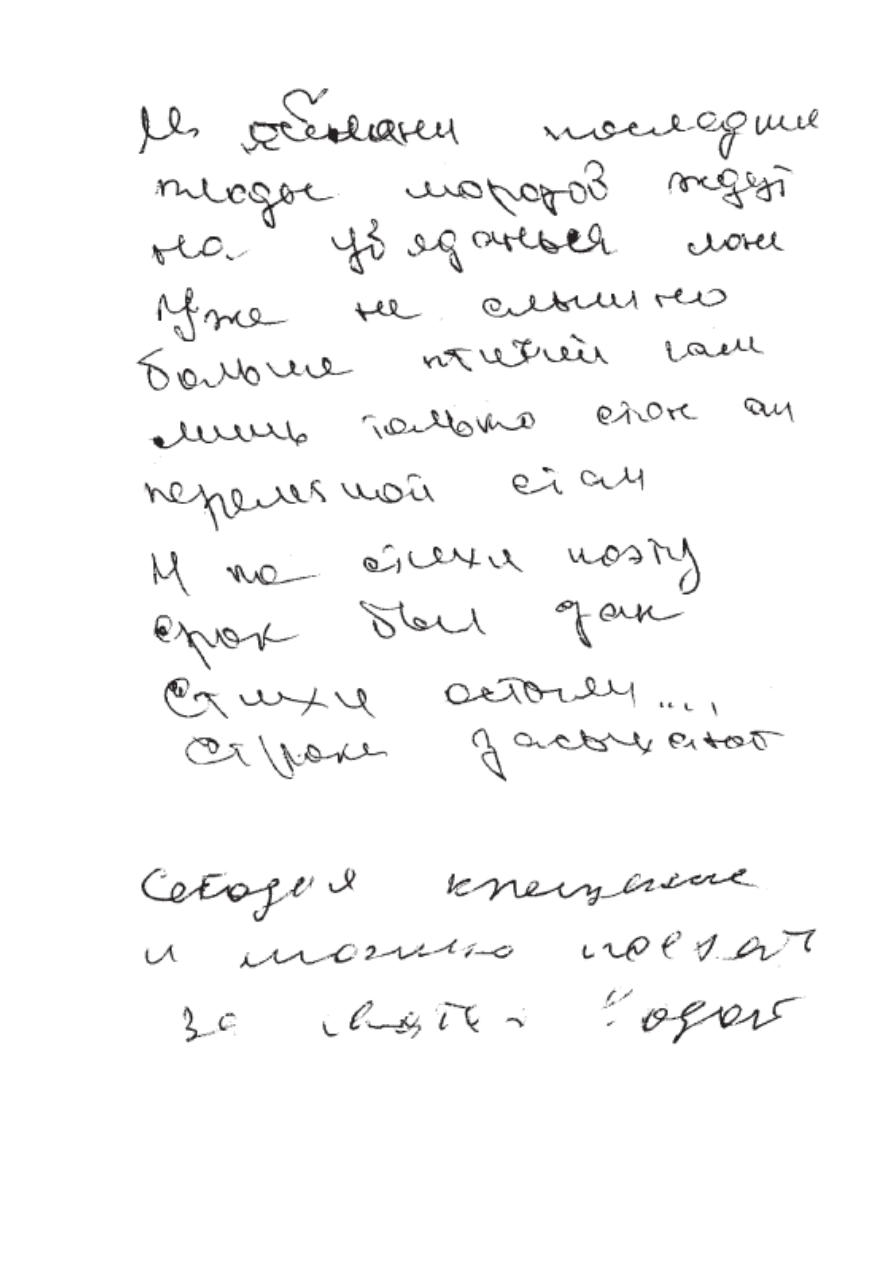 И последние
плоды морозов ждут
на увяданья лоне
Уже не слышно
больше птичий гам
лишь только стон
перелётной стаи
И на стихи поэту
срок был дан
Стихи остыли....
строки засыхают
Сегодня крещение
и можно поехат
за водой